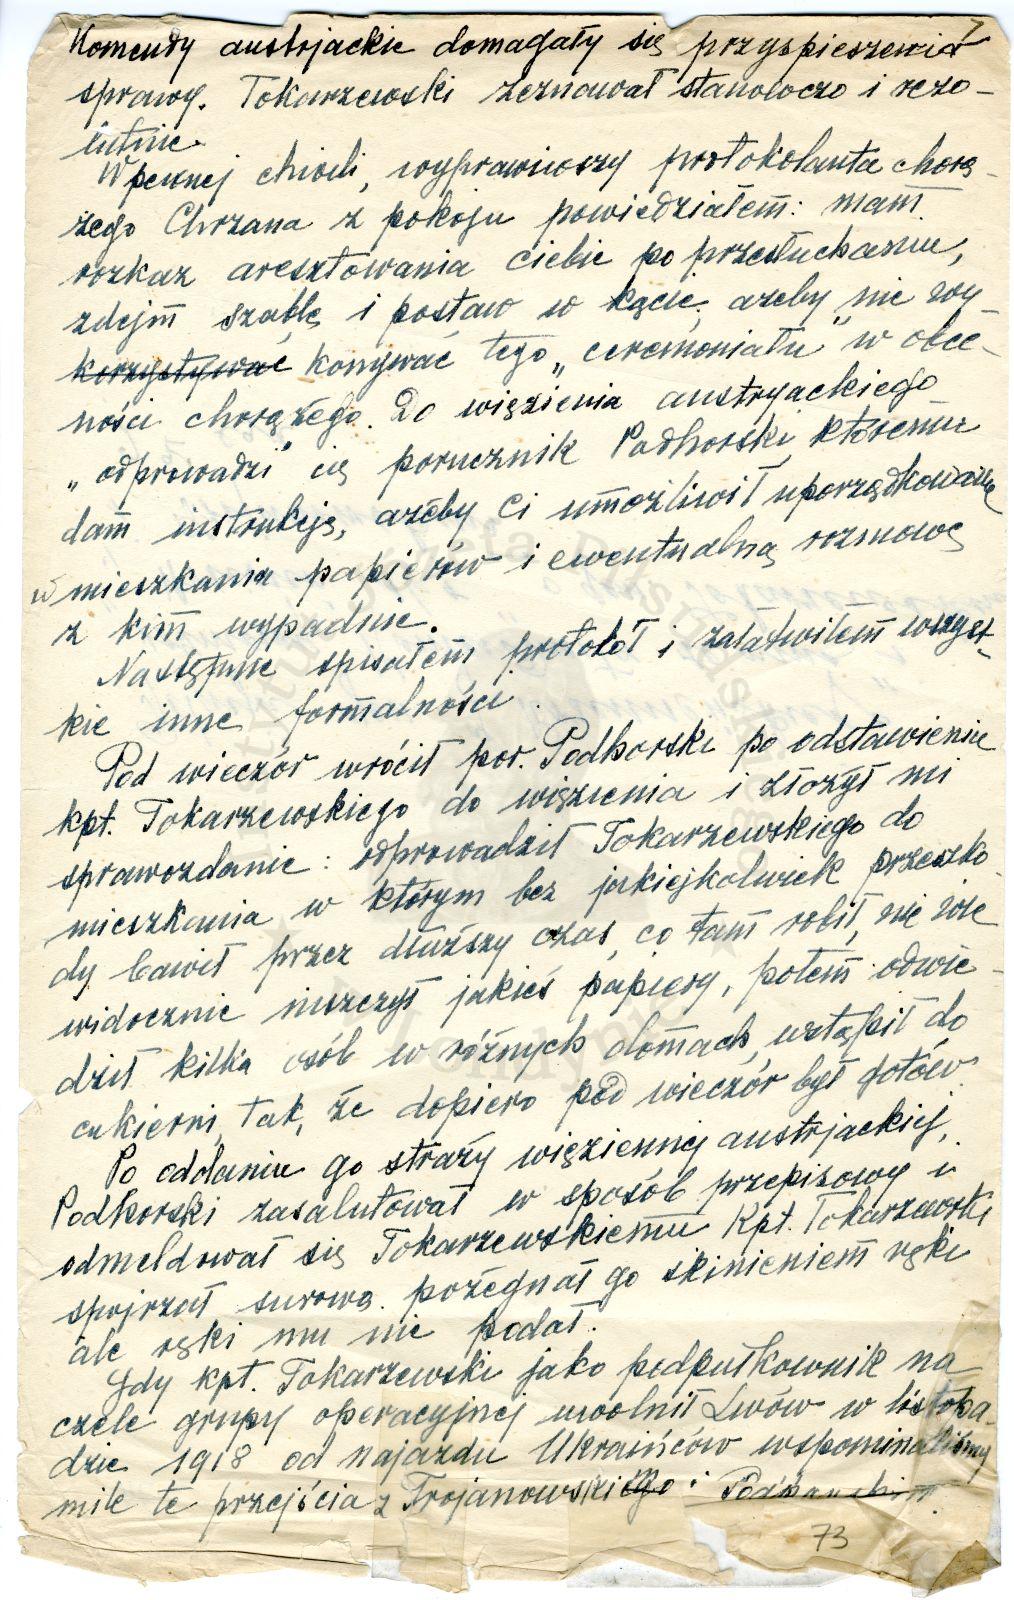 7
Komendy austrjackie domagały się przyspieszenia
sprawy. Tokarzewski zeznawał stanowczo i rezo-
lutnie.
W pewnej chwili, wyprawiwszy protokolanta chorą-
żego Chrzana z pokoju powiedziałem: mam
rozkaz aresztowania ciebie po przesłuchaniu,
zdejm szablę i postaw w kącie, ażeby nie wy-
korzystywać konywać tego „ceremoniału" w obec-
ności chorążego. Do więzienia austryackiego
„odprowadzi" cię porucznik Podhorski, któremu
dam instrukcję, ażeby Ci umożliwił uporządkowanie
w mieszkania papierów i ewentualną rozmowę
z kim wypadnie.
Następnie spisałem protokół i załatwiłem wszyst-
kie inne formalności.
Pod wieczór wrócił por. Podhorski po odstawieniu
kpt. Tokarzewskiego do więzienia i złożył mi
sprawozdanie: odprowadził Tokarzewskiego do
mieszkania w którym bez jakiejkolwiek przeszko-
dy bawił przez dłuższy czas, co tam robił, nie wie
widocznie niszczył jakieś papiery, potem odwie-
dził kilka osób w różnych domach, wstąpił do
cukierni, tak, że dopiero pod wieczór był gotów.
Po oddaniu go straży więziennej austrjackiej,
Podhorski zasalutował w sposób przepisowy i
odmeldował się Tokarzewskiemu Kpt. Tokarzewski
spojrzał surowo pożegnał go skinieniem ręki
ale ręki mu nie podał.
Gdy kpt. Tokarzewski jako podpułkownik na
czele grupy operacyjnej uwolnił Lwów w listopa-
dzie 1918 od najazdu Ukraińców wspominaliśmy
mile te przejścia z Trojanowskiego i
73